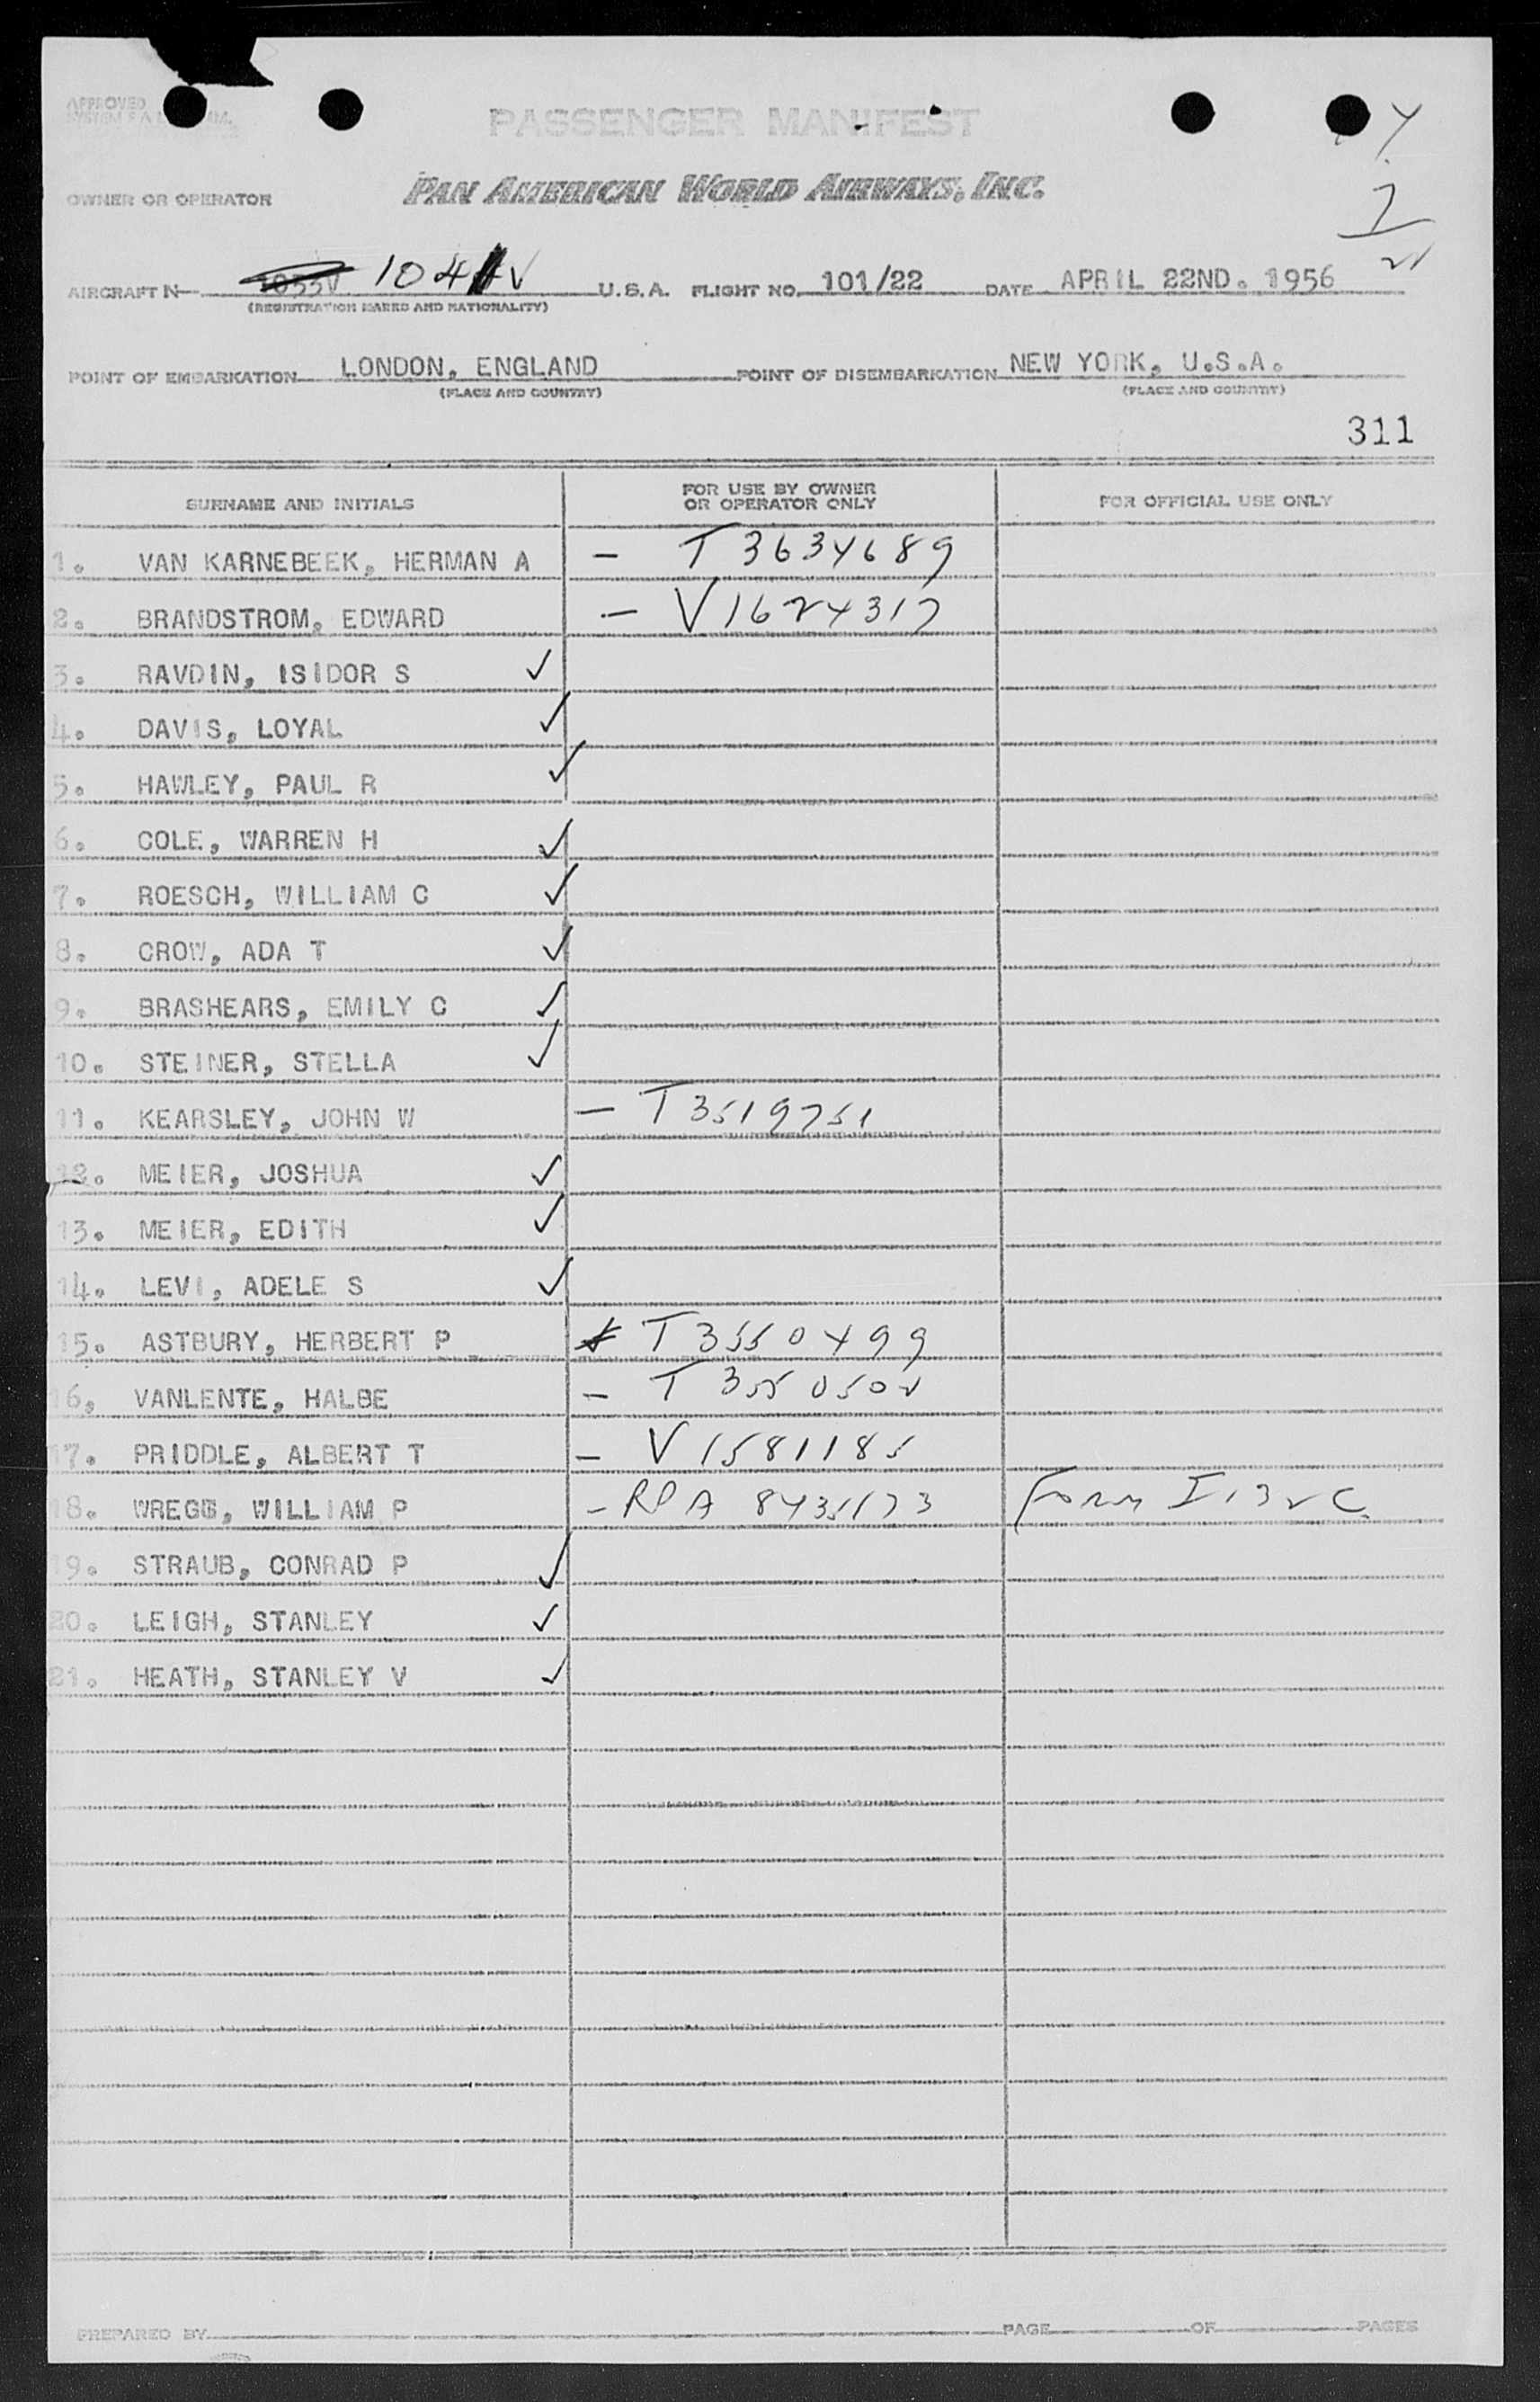 APPROVED
PASSENGER MANIFEST
OWNER OR OPERATOR PAN AMERICAN WORLD AIRWAYS, INC.
AIRCRAFT N 1041V U.S.A. FLIGHT NO. 101/22 DATE APRIL 22ND. 1956
(REGISTRATION MARKS AND NATIONALITY)
POINT OF EMBARKATION LONDON, ENGLAND POINT OF DISEMBARKATION NEW YORK, U.S.A.
(PLACE AND COUNTRY) (PLACE AND COUNTRY)
311
SURNAME AND INITIALS FOR USE BY OWNER OR OPERATOR ONLY FOR OFFICIAL USE ONLY
1. VAN KARNEBEEK, HERMAN A – T 3634689
2. BRANDSTROM, EDWARD – V1624317
3. RAVDIN, ISIDOR S ✓
4. DAVIS, LOYAL ✓
5. HAWLEY, PAUL R ✓
6. COLE, WARREN H ✓
7. ROESCH, WILLIAM C ✓
8. CROW, ADA T ✓
9. BRASHEARS, EMILY C ✓
10. STEINER, STELLA ✓
11. KEARSLEY, JOHN W – T3519751
12. MEIER, JOSHUA ✓
13. MEIER, EDITH ✓
14. LEVI, ADELE S ✓
15. ASTBURY, HERBERT P T 3550499
16. VANLENTE, HALBE – T 3550502
17. PRIDDLE, ALBERT T – V 1581185
18. WREGG, WILLIAM P – RPA 8435173 Form I 132C
19. STRAUB, CONRAD P ✓
20. LEIGH, STANLEY ✓
21. HEATH, STANLEY V ✓
PREPARED BY PAGE OF PAGES